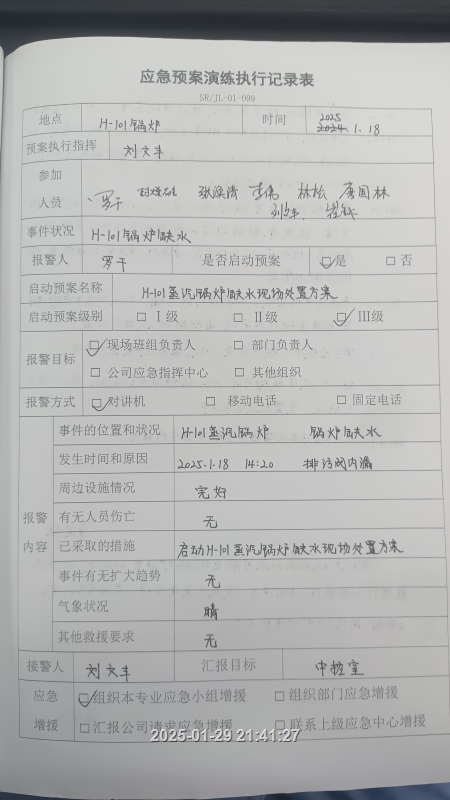 应急预案演练执行记录表
SR/JL-01-099
地点 H-101锅炉 时间 2025
2024.1.18
预案执行指挥 刘文丰
参加 罗干 张焕涛 李伟 林松 唐国林
人员
事件状况 H-101锅炉缺水
报警人 罗干 是否启动预案 ☑是 □否
启动预案名称 H-101蒸汽锅炉缺水现场处置方案
启动预案级别 □Ⅰ级 □Ⅱ级 ☑Ⅲ级
报警目标 ☑现场班组负责人 □部门负责人
□公司应急指挥中心 □其他组织
报警方式 ☑对讲机 □移动电话 □固定电话
事件的位置和状况 H-101蒸汽锅炉 锅炉缺水
发生时间和原因 2025.1.18 14:20 排污阀内漏
周边设施情况 完好
报警 有无人员伤亡 无
内容 已采取的措施 启动H-101蒸汽锅炉缺水现场处置方案
事件有无扩大趋势 无
气象状况 晴
其他救援要求 无
接警人 刘文丰 汇报目标 中控室
应急 ☑组织本专业应急小组增援 □组织部门应急增援
增援 □汇报公司请求应急增援 □联系上级应急中心增援
2025-01-29 21:41:27